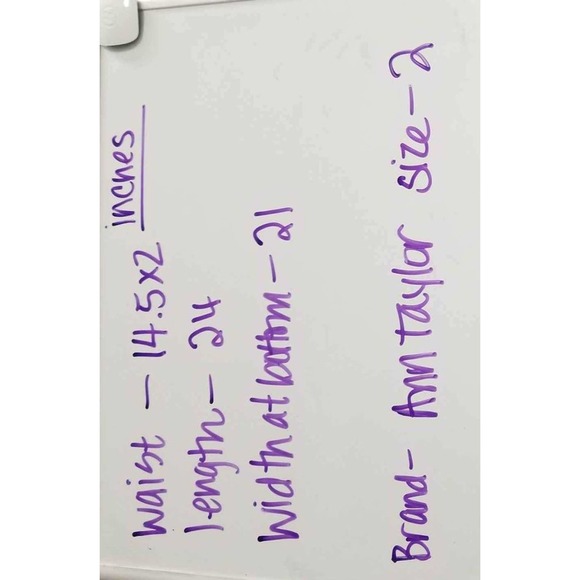 inches
Waist - 14.5x2
length - 24
Width at bottom - 21
Brand - Ann Taylor size - 2